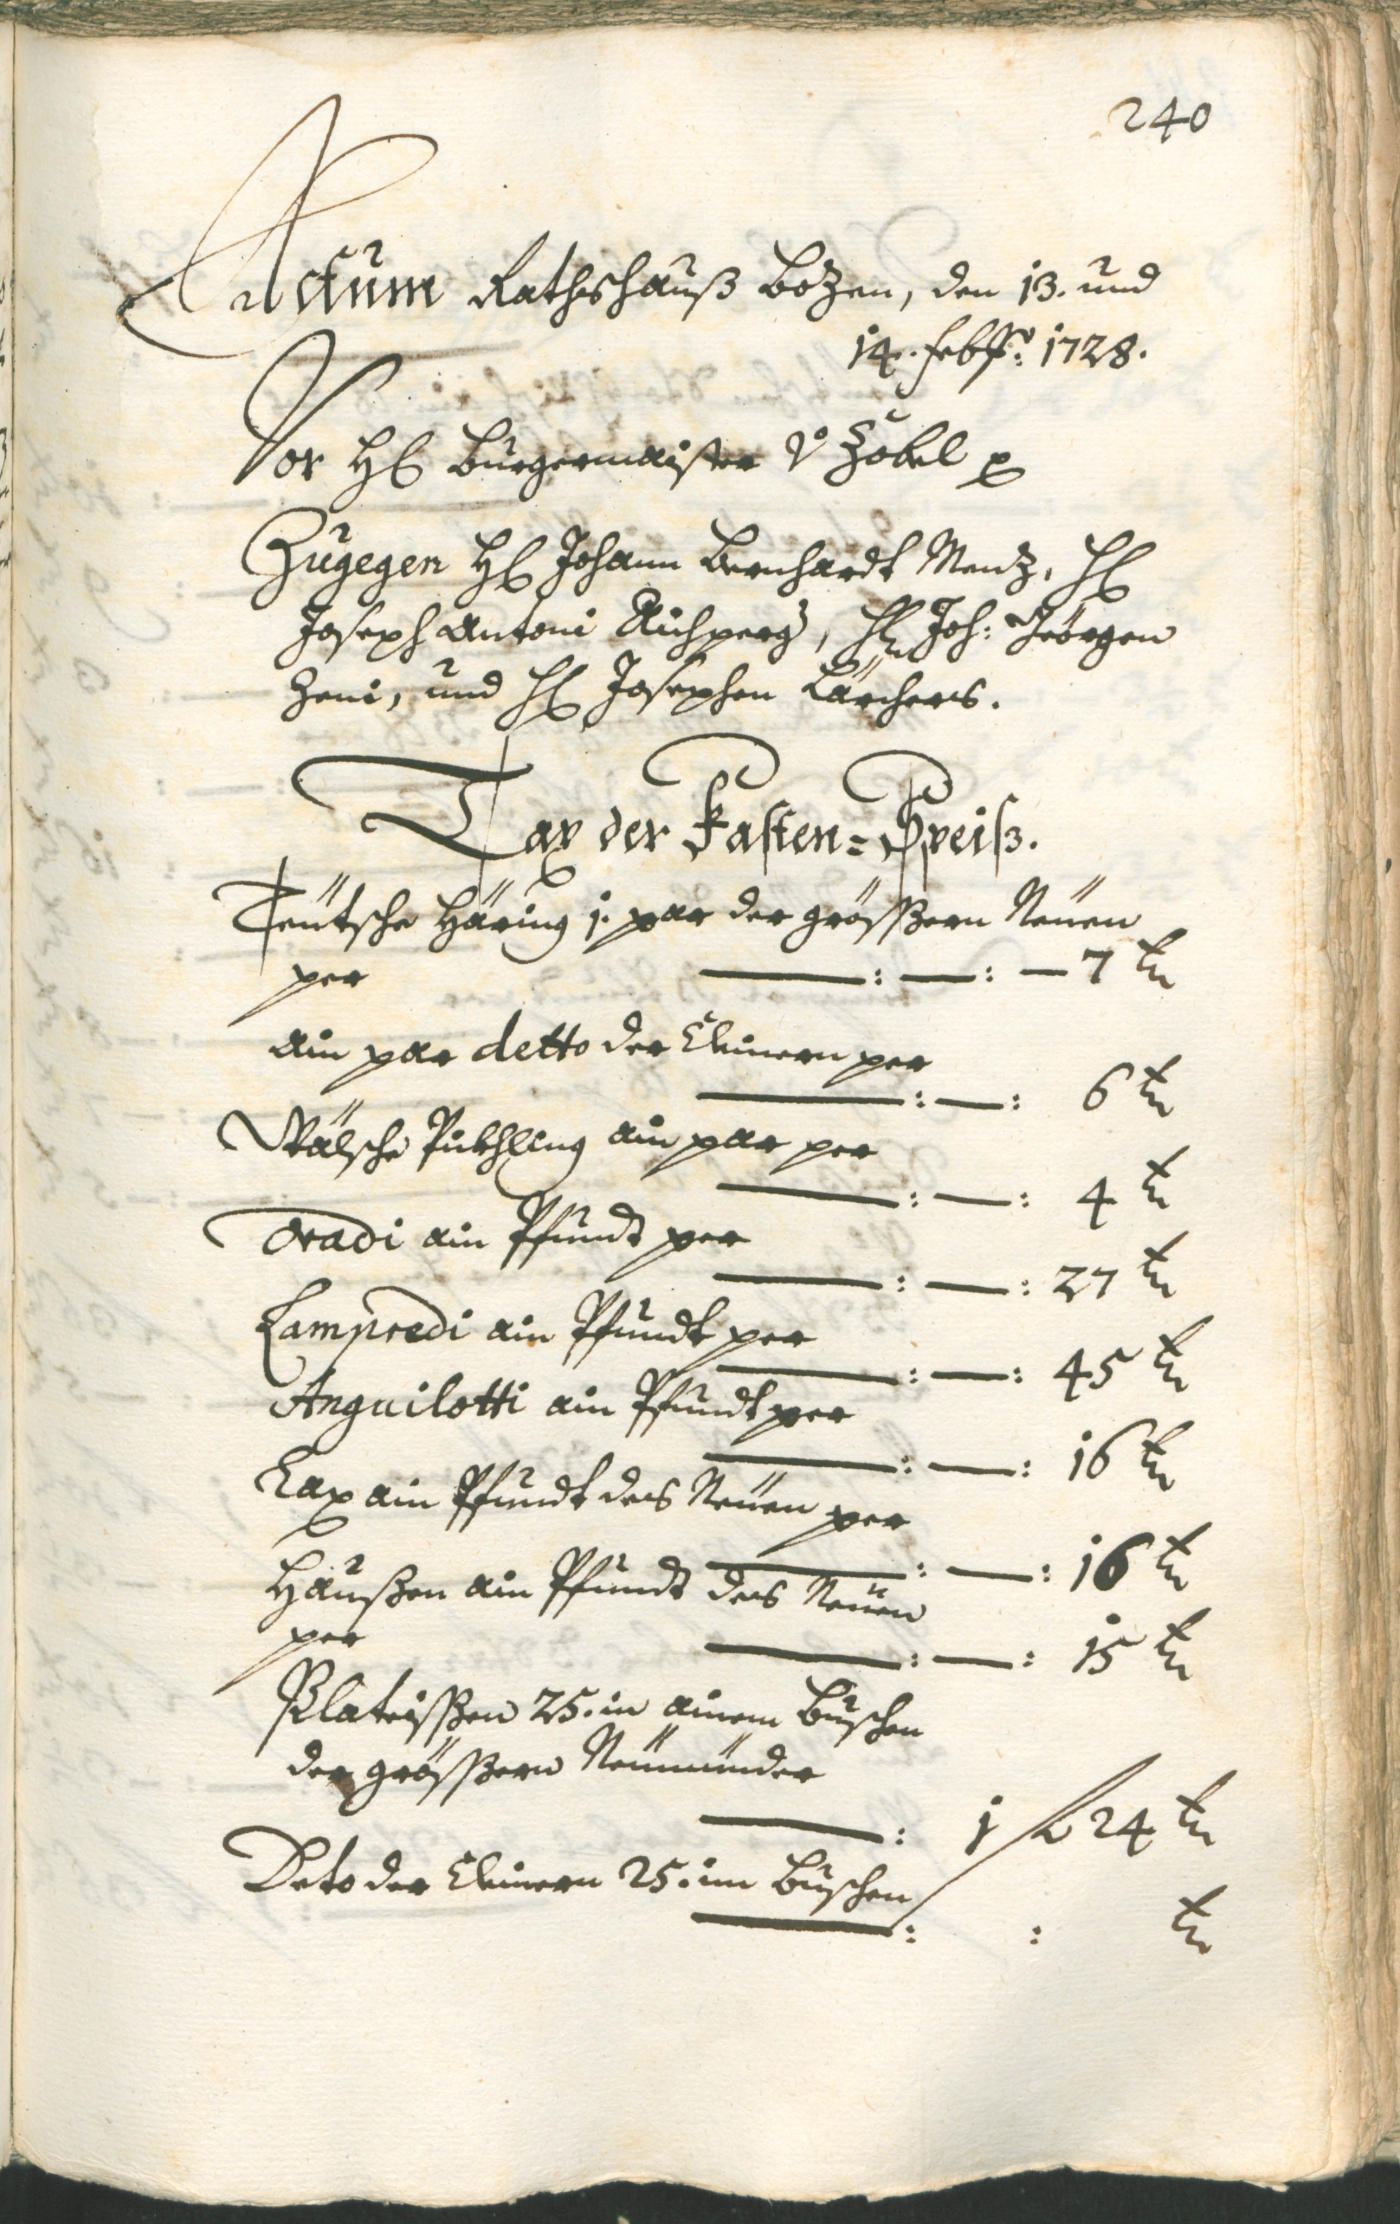 240
Actum Rathshauß Bozen, den 13. und
14. Febr: 1728.
Vor H Burgermaister v Zobel p
Zugegen H Johann Bernhardt Menz, H
Joseph Antoni Aichperg, H Joh: Jeörgen
Zeni, und H Josephen Lärchers.
Tax der Fasten-Speiß.
Teütsche Häring j. par der grössern Neuen
per —:—:— 7 kr
ain par detto der Cleinern per
—:—: 6 kr
Wälsche Pikhling ain par per
—:—: 4 kr
Oradi ain Pfundt per
—:—: 27 kr
Lampredi ain Pfundt per
—:—: 45 kr
Anguilotti ain Pfundt per
—:—: 16 kr
Lax ain Pfundt des Neuen per
—:—: 16 kr
Haußen ain Pfundt des Neuen
per —:—: 15 kr
Plateissen 25. in ainem Buschen
der grössern Neumünder
—: 1 f 24 kr
Deto der Cleinern 25. im Buschen
—: : kr